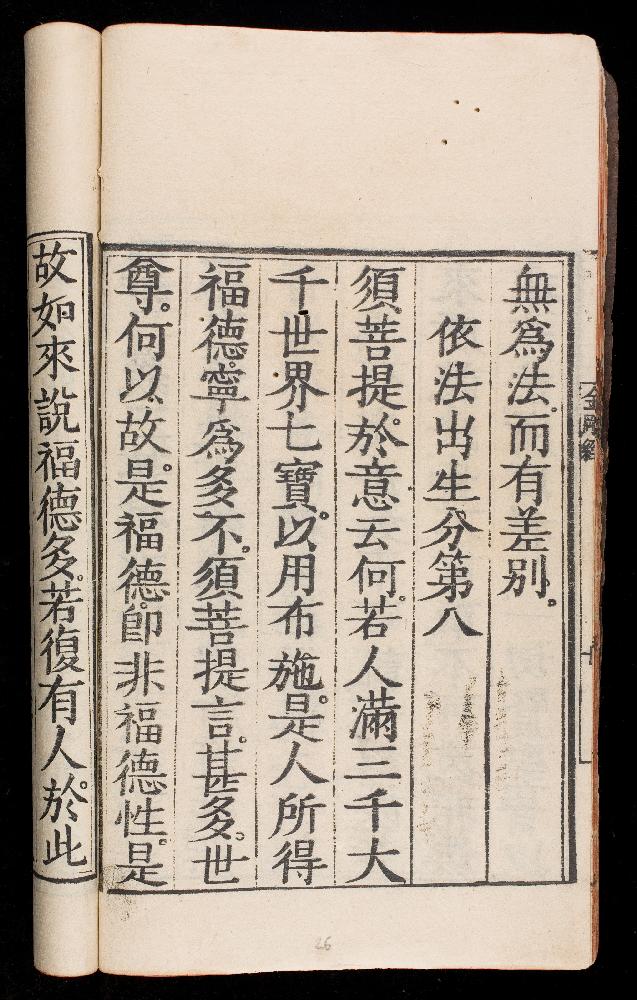 無爲法。而有差別。
依法出生分第八
須菩提。於意云何。若人滿三千大
千世界七寶。以用布施。是人所得
福德。寧爲多不。須菩提言。甚多。世
尊。何以故。是福德。卽非福德性。是
故如來說福德多。若復有人。於此
金剛經
26